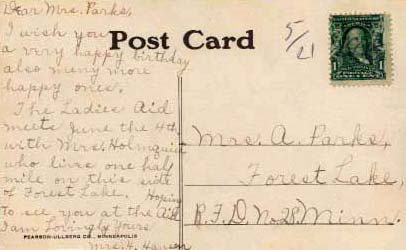 Dear Mrs. Parks,
I wish you
a very happy birthday
also meny more
happy ones.
The Ladies Aid
meets June the 4th
with Mrs. Holmquist
who lives one half
mile on this side
of Forest Lake. Hoping
to see you at the Aid
I am Lovingly Yours
Mrs. H. Hansen
PEARSON-ULLBERG CO., MINNEAPOLIS
Post Card
5/21
1
1
Mrs. A. Parks,
Forest Lake,
R.F.D. No 28, Minn.